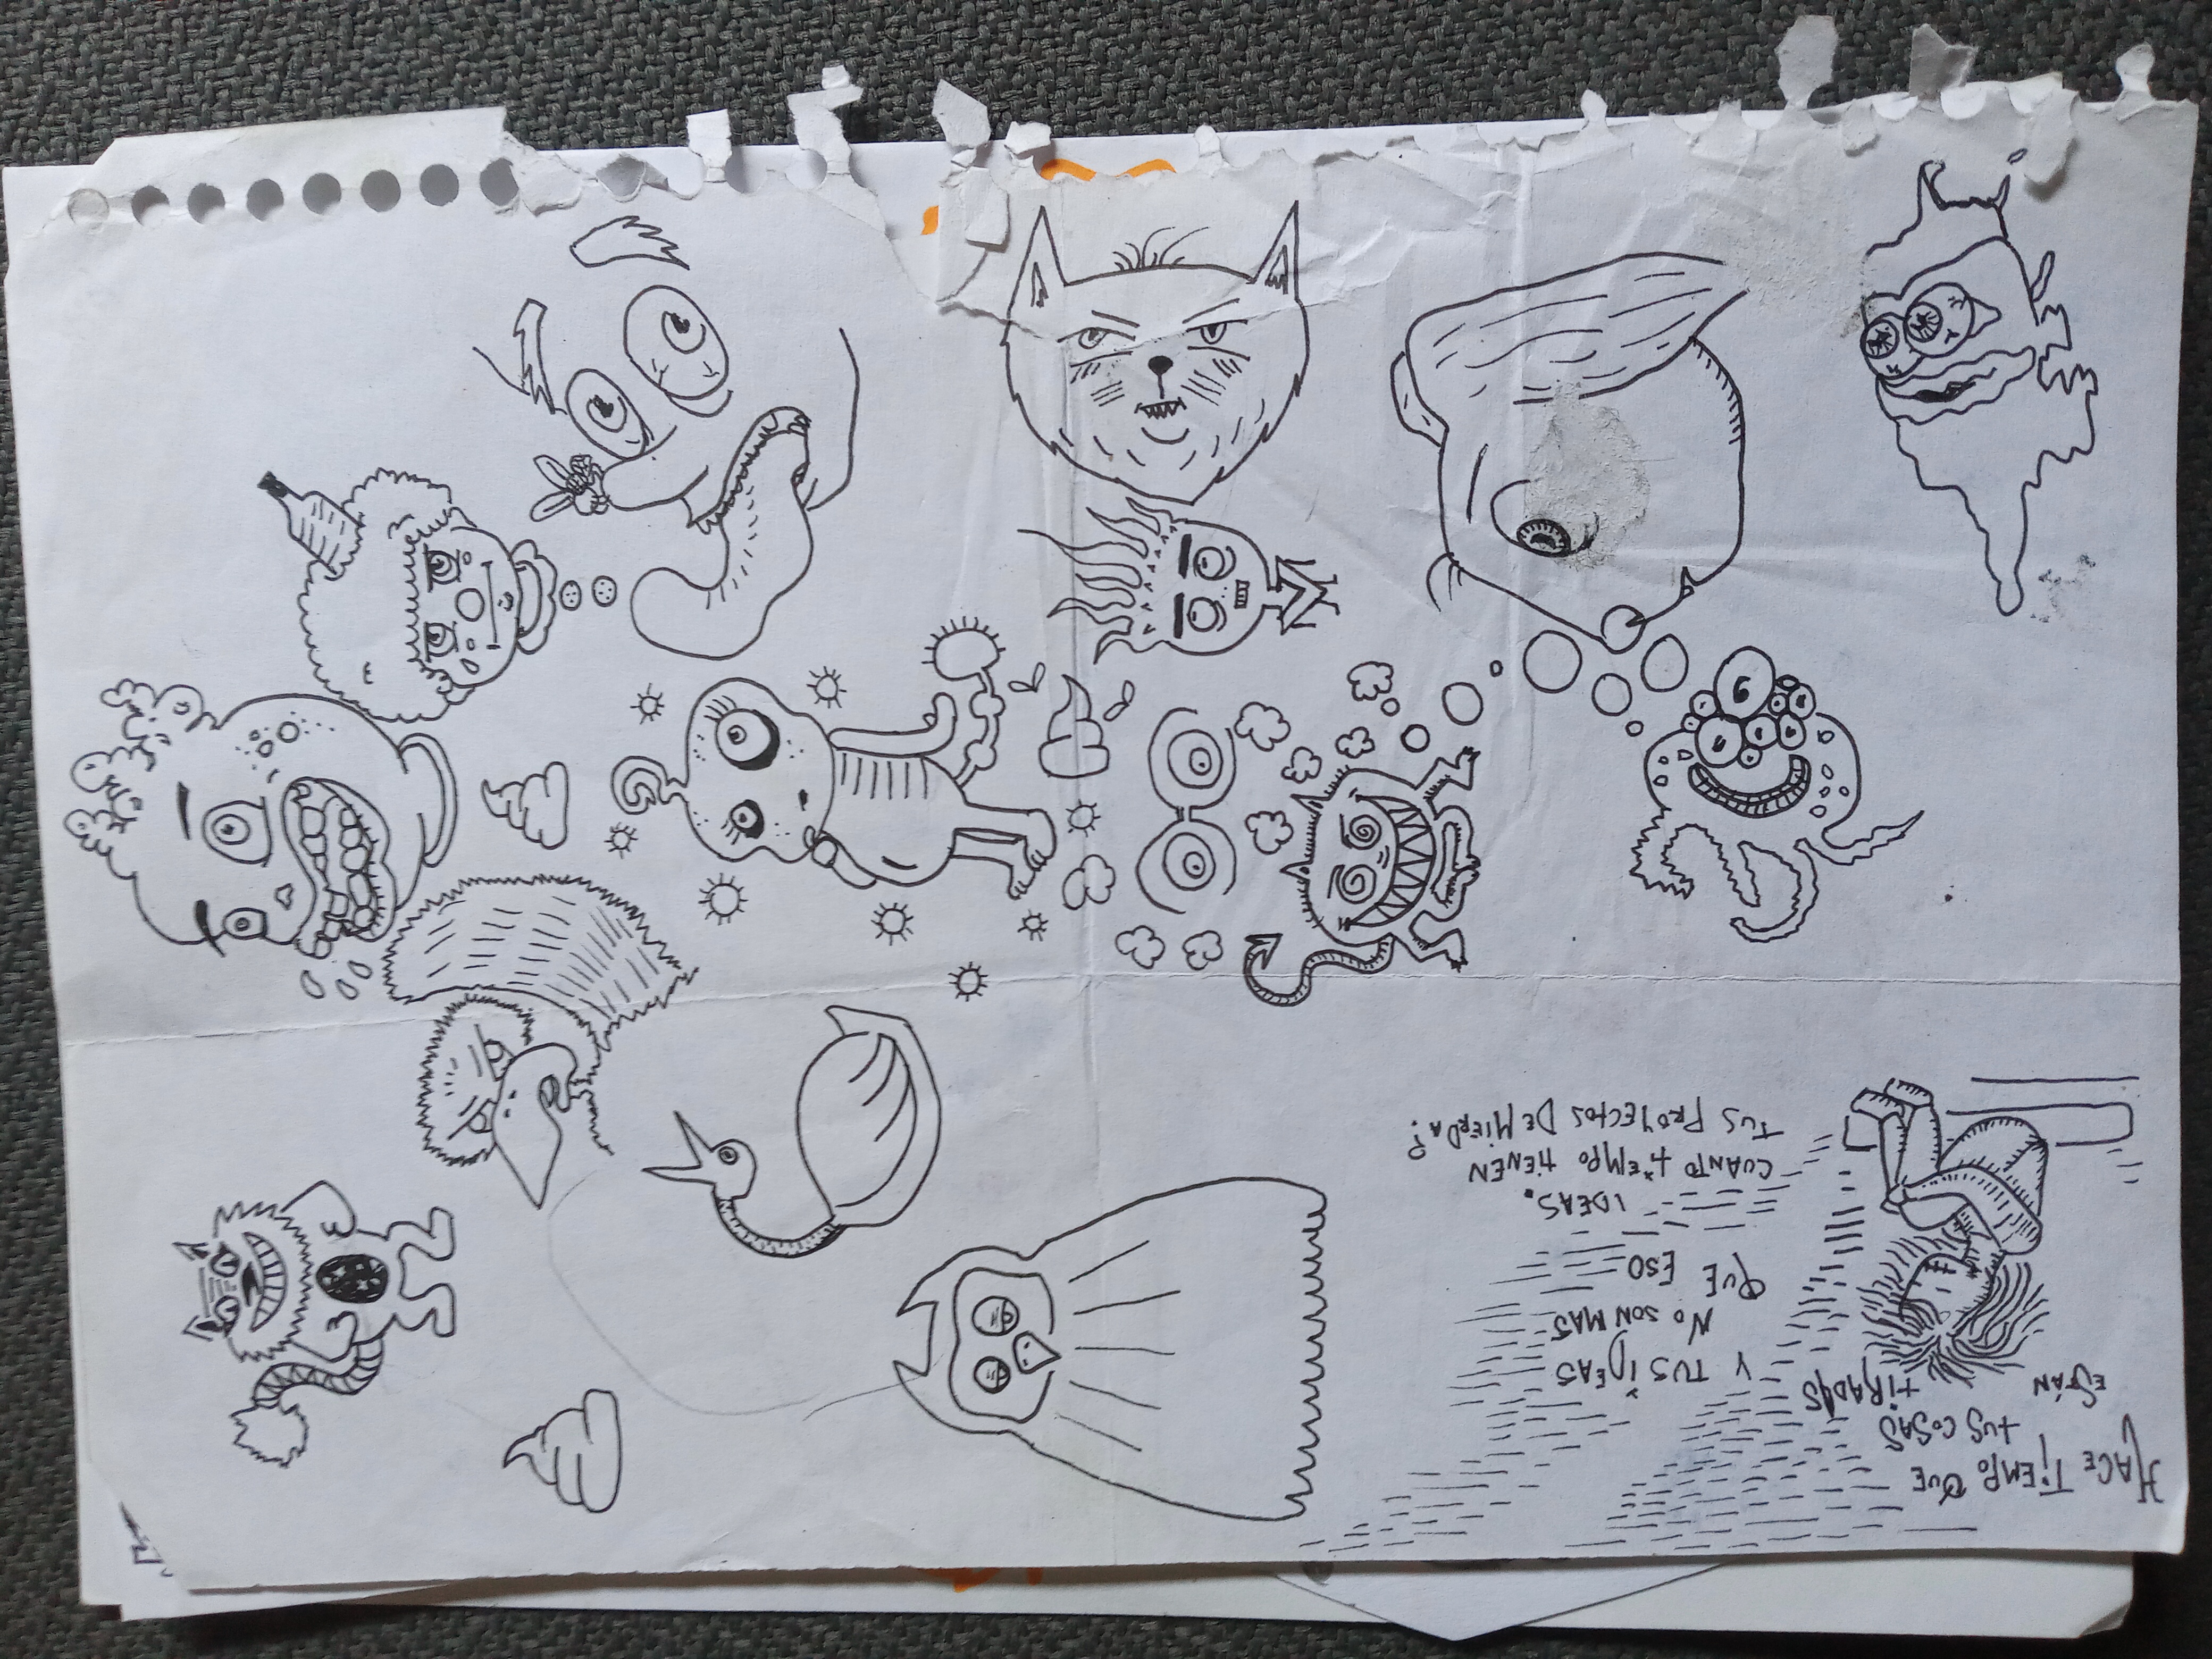 HACE TIEMPO QUE
TUS COSAS
ESTÁN TIRADAS
Y TUS IDEAS
NO SON MAS
QUE ESO
IDEAS.
CUANTO TIEMPO TIENEN
TUS PROYECTOS DE MIERDA?